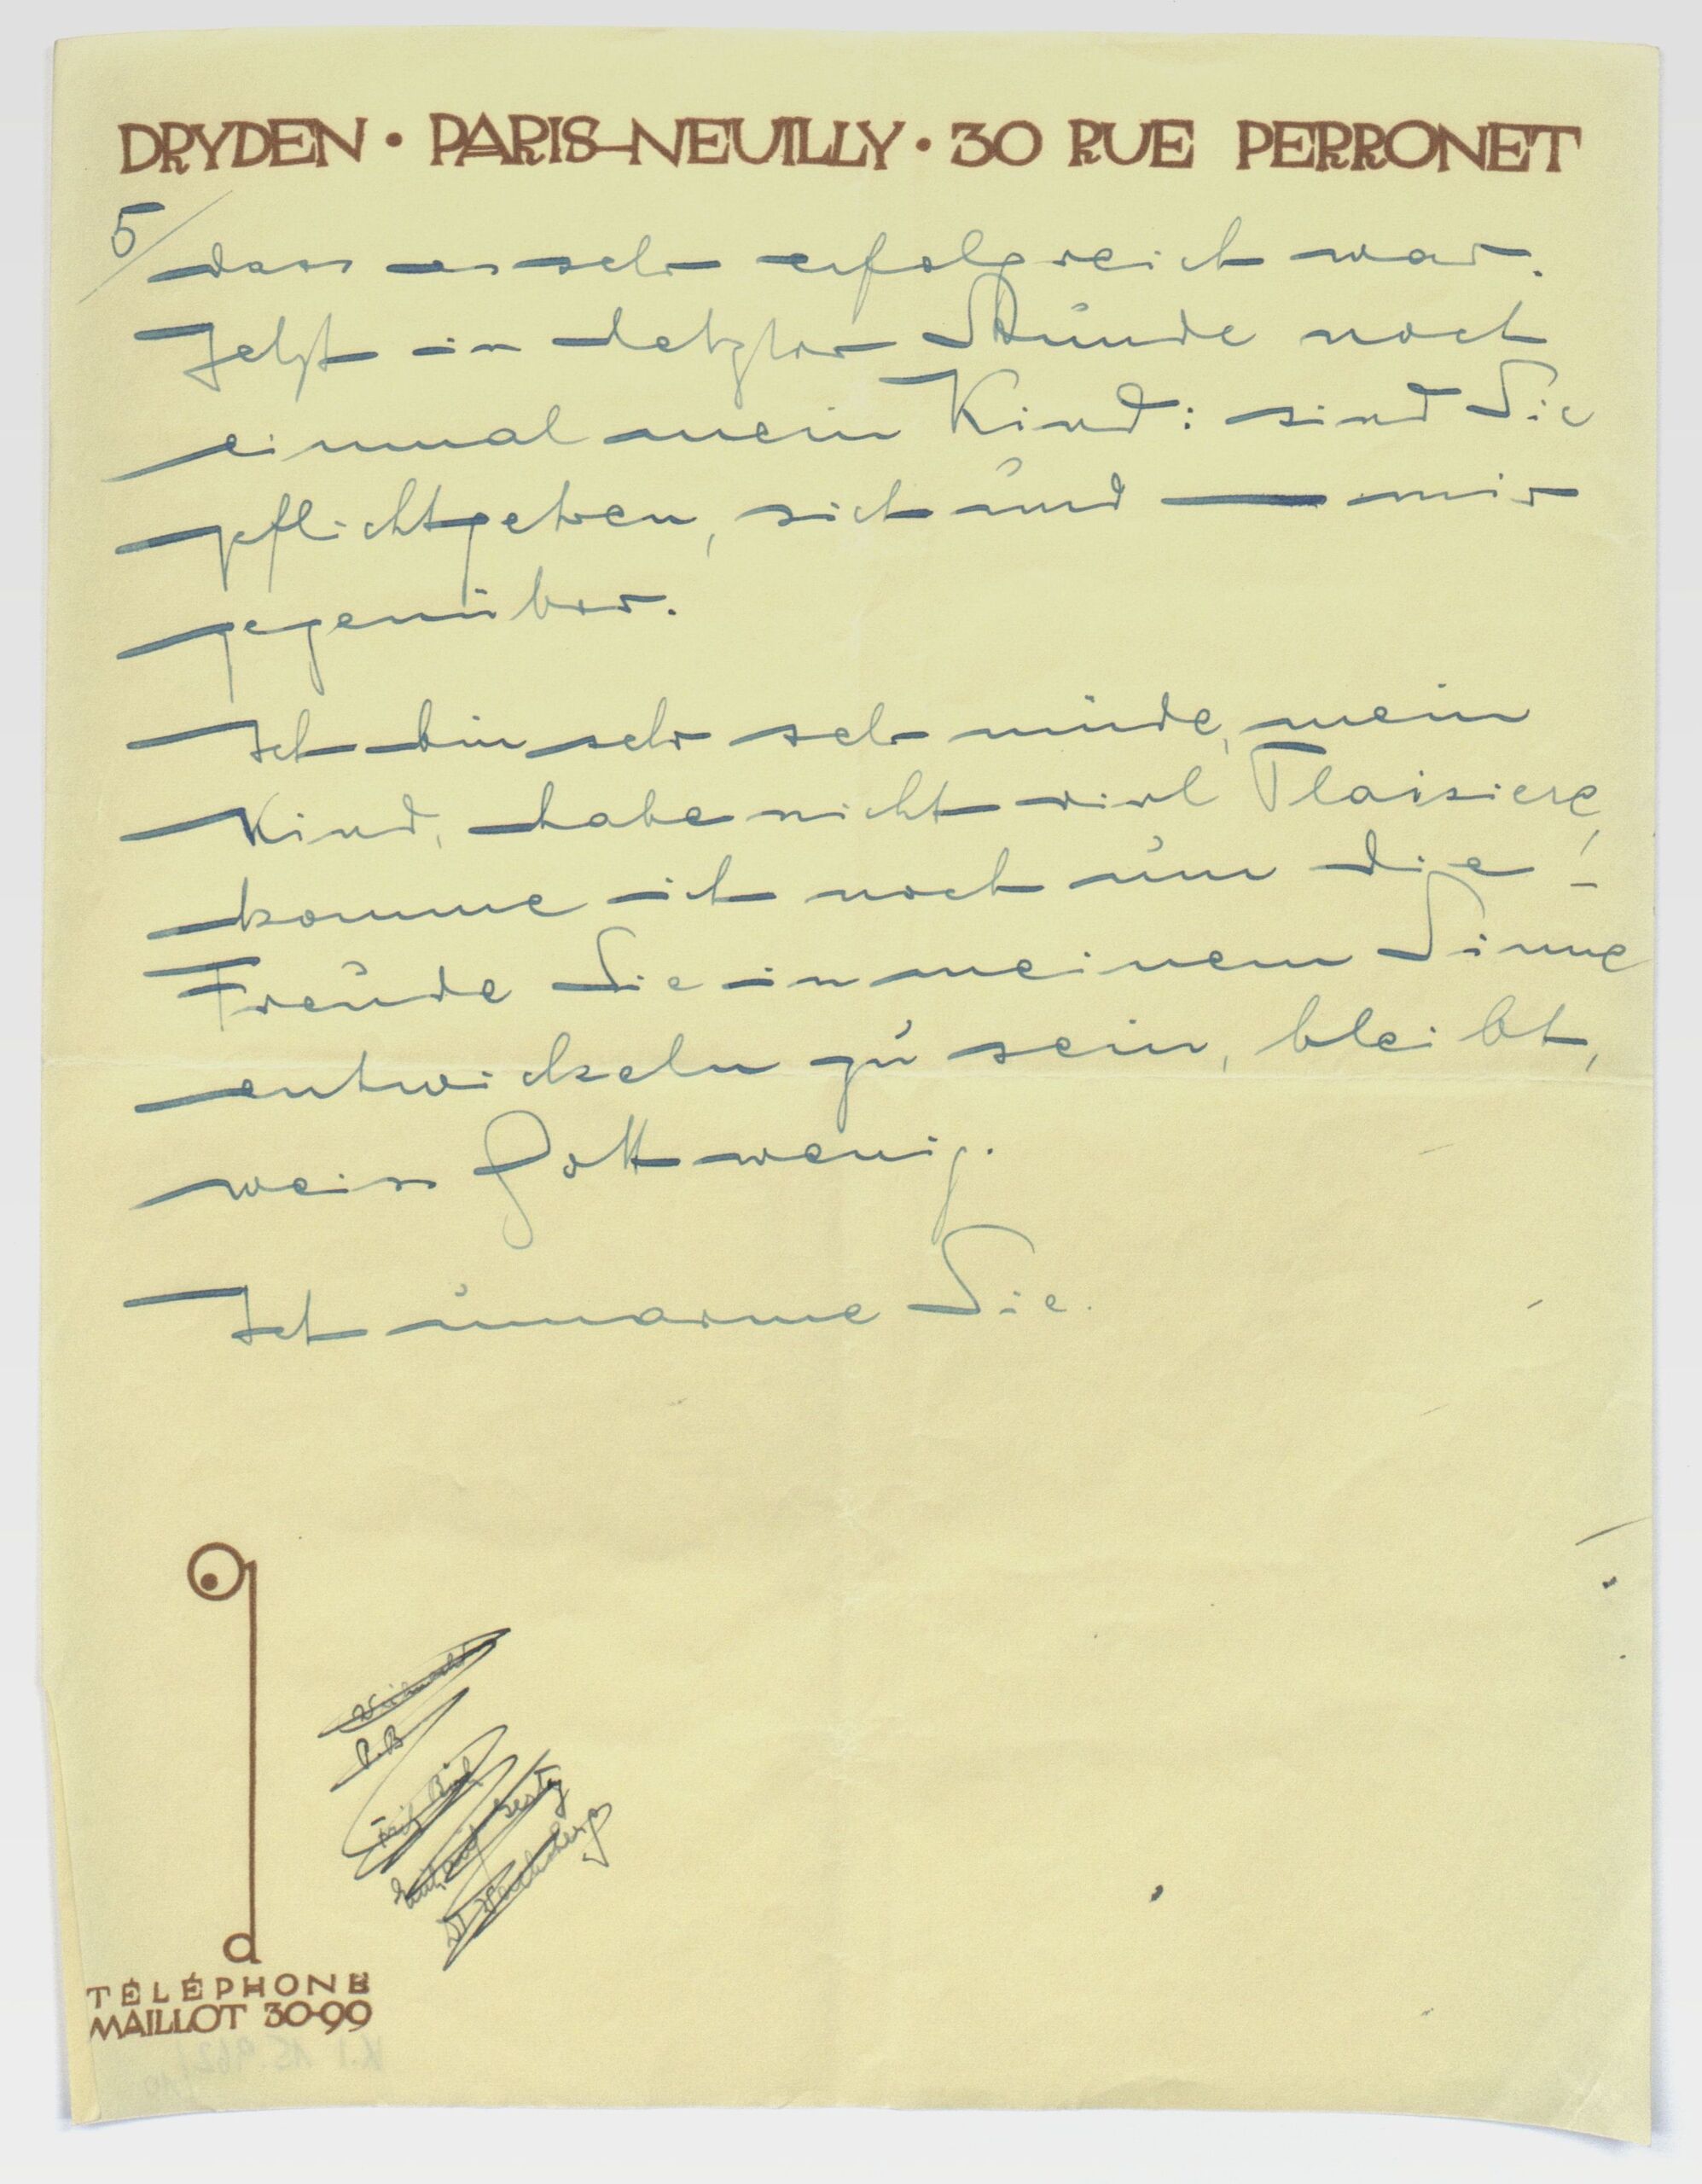 DRYDEN • PARIS-NEUILLY • 30 RUE PERRONET
5/
dass es sehr erfolgreich war.
Jetzt in letzter Stunde noch
einmal mein Kind: sind Sie
pflichtgetreu, sich und — mir
gegenüber.
Ich bin sehr sehr müde, mein
Kind, habe nicht viel Plaisiere,
komme ich noch um die !
Freude Sie in meinem Sinne
entwickeln zu sein, bleibt,
weiss Gott wenig.
Ich umarme Sie.
d
TÉLÉPHONE
MAILLOT 30-90